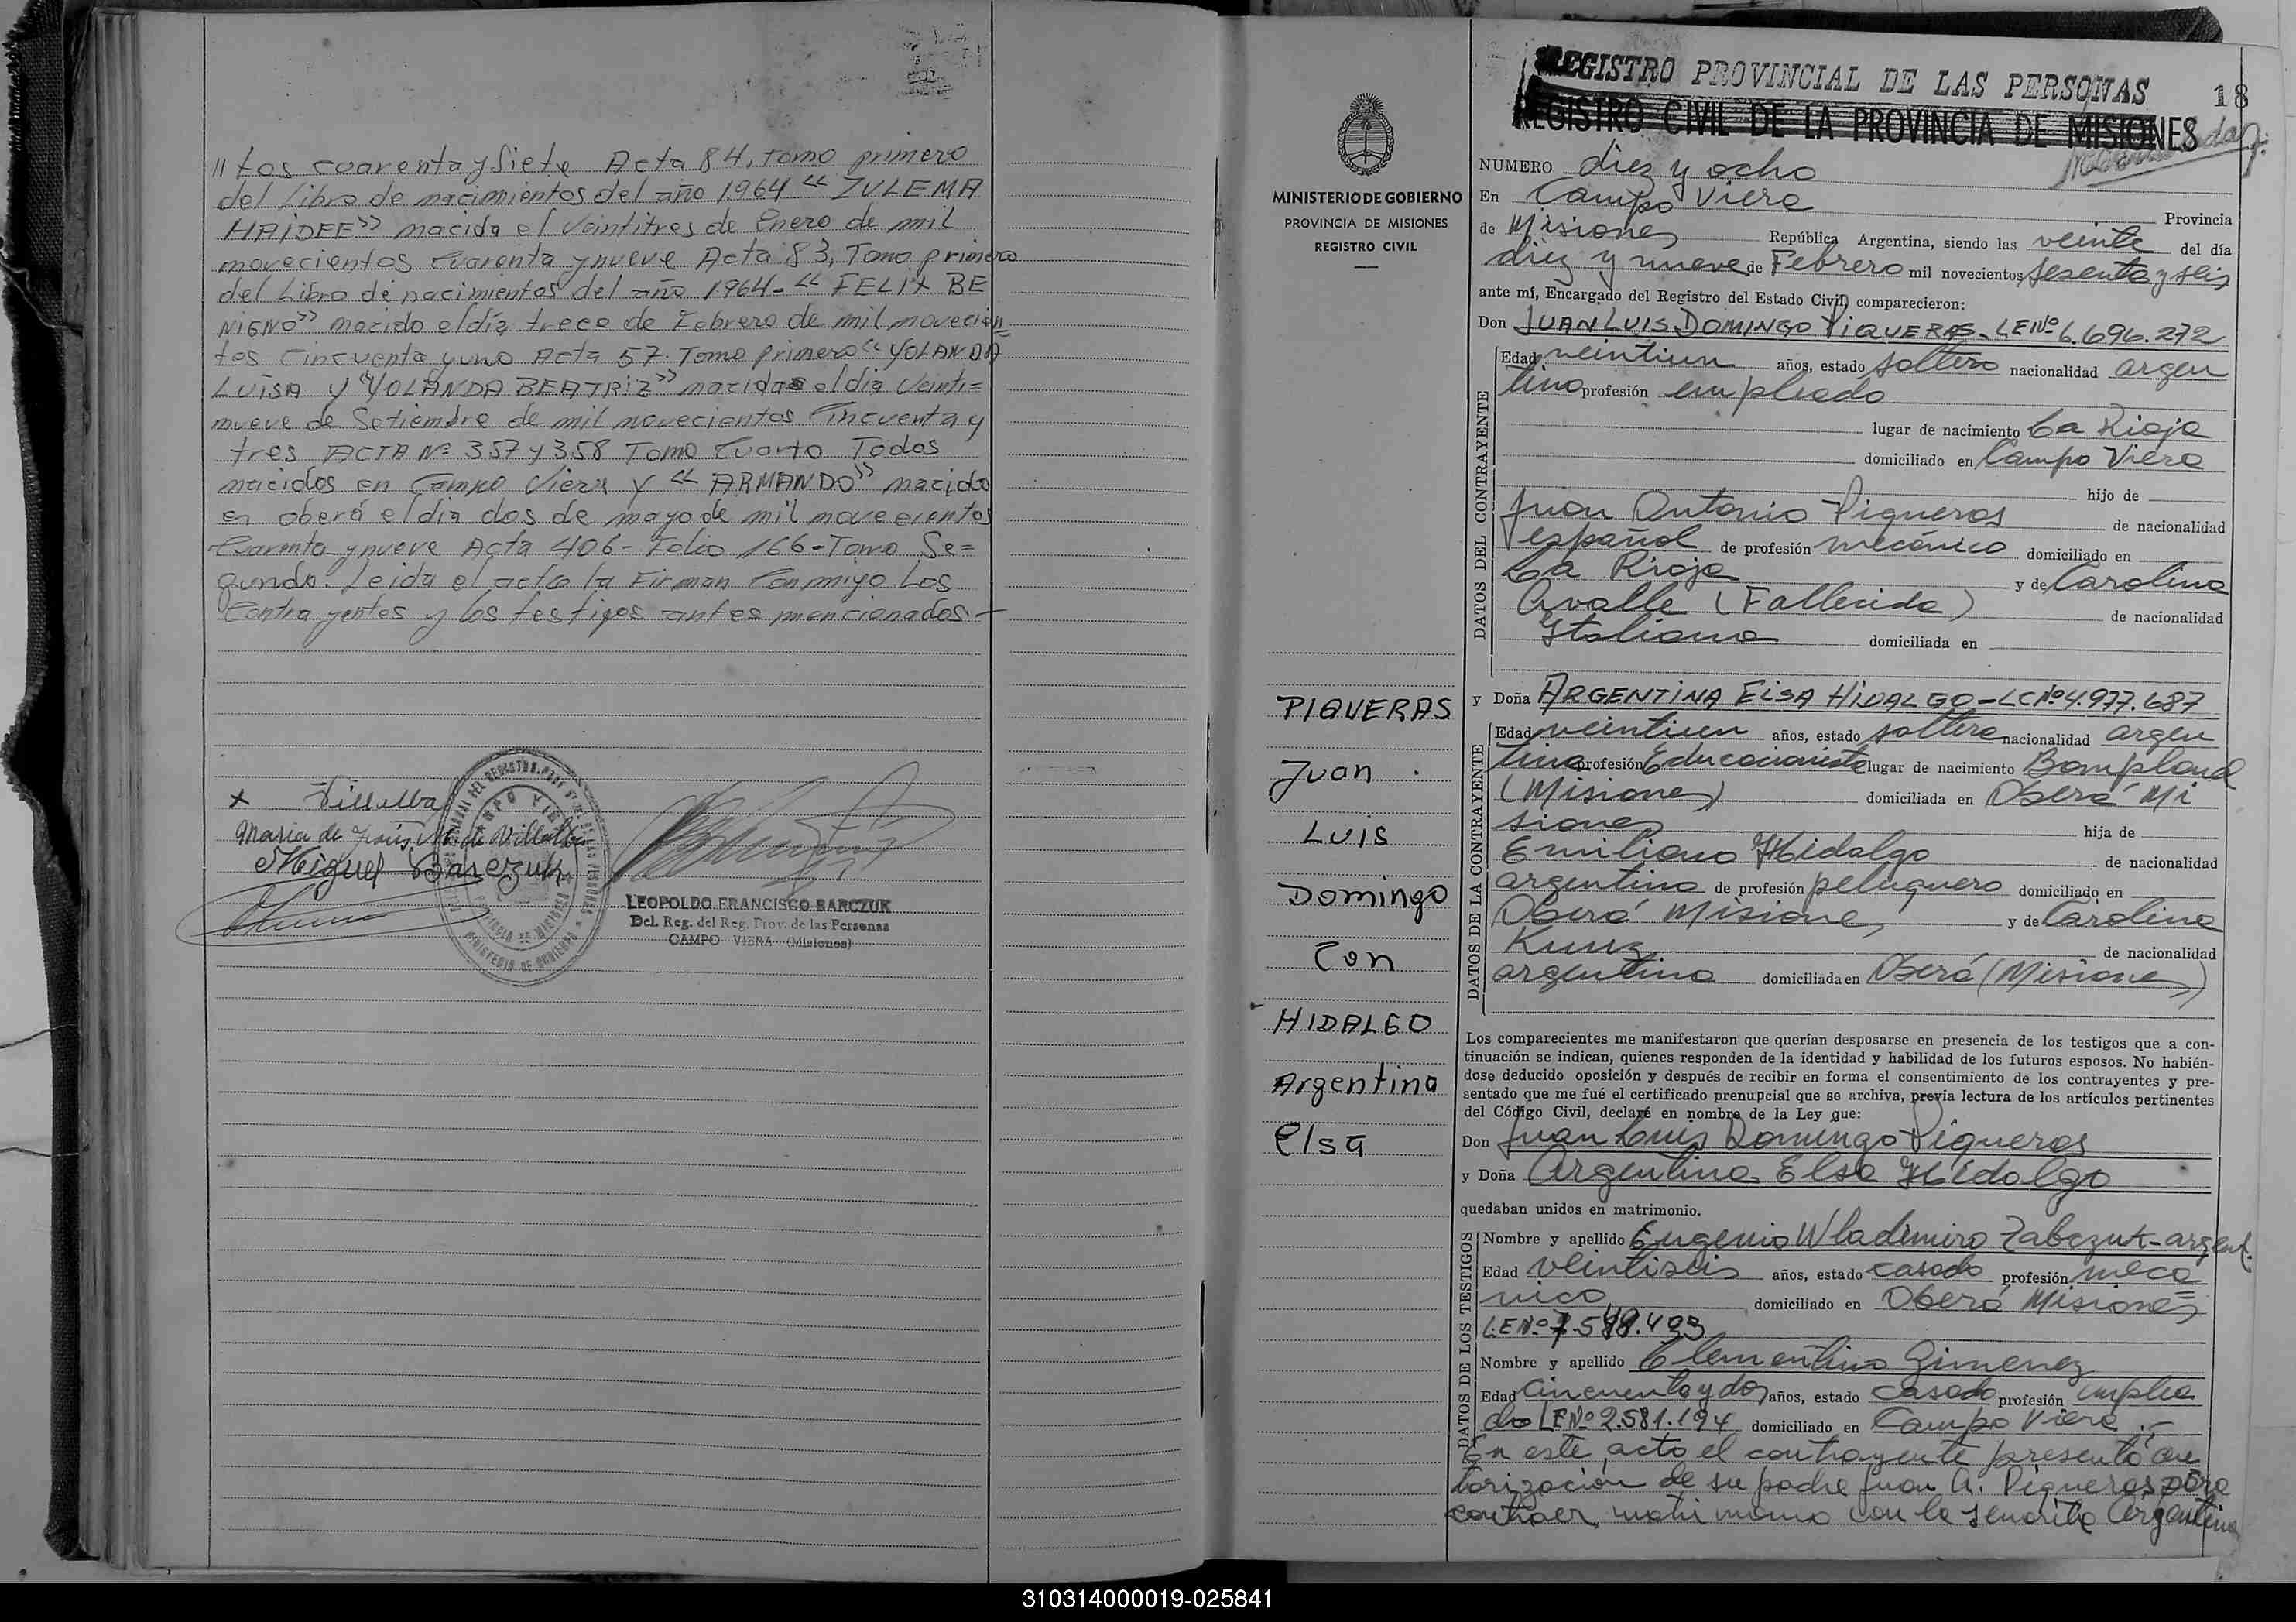 "tos cuarenta y Siete Acta 84, tomo primero
del Libro de nacimientos del año 1964 "ZULEMA
HAIDEE" nacida el Veintitres de Enero de mil
novecientos cuarenta y nueve Acta 83, Tomo primero
del Libro de nacimientos del año 1964- "FELIX BE
NIGNO" nacido el día trece de Febrero de mil novecien
tos Cincuenta y uno Acta 57. Tomo primero "YOLANDA
LUISA y "YOLANDA BEATRIZ" nacidas el dia Veinti=
nueve de Setiembre de mil novecientos Cincuenta y
tres ACTA Nº 357 y 358 Tomo Cuarto Todos
nacidos en Campo Viera y "ARMANDO" nacido
en oberá el dia dos de mayo de mil novecientos
Cuarenta y nueve Acta 406- Folio 166- Tomo Se=
gundo. Leida el acta la Firman Conmigo Los
Contrayentes y los testigos antes mencionados.-
x Villalba
Maria de Jesús M. de Villalba
Miguel Barczuk
LEOPOLDO FRANCISCO BARCZUK
Del. Reg. del Reg. Prov. de las Personas
CAMPO VIERA (Misiones)
MINISTERIO DE GOBIERNO
PROVINCIA DE MISIONES
REGISTRO CIVIL
PIQUERAS
Juan
Luis
Domingo
Con
HIDALGO
Argentina
Elsa
REGISTRO PROVINCIAL DE LAS PERSONAS
18
REGISTRO CIVIL DE LA PROVINCIA DE MISIONES
NUMERO diez y ocho
En Campo Viera
Provincia
de Misiones República Argentina, siendo las veinte del día
diez y nueve de Febrero mil novecientos sesenta y seis
ante mí, Encargado del Registro del Estado Civil, comparecieron:
Don JUAN LUIS DOMINGO PIQUERAS- LE Nº 6.696.272
DATOS DEL CONTRAYENTE
Edad veintiun años, estado soltero nacionalidad argen
tino profesión empleado
lugar de nacimiento La Rioja
domiciliado en Campo Viera
hijo de
Juan Antonio Piqueras de nacionalidad
español de profesión mecánico domiciliado en
La Rioja y de Carolina
Avalle (Fallecida) de nacionalidad
Italiana domiciliada en
y Doña ARGENTINA ELSA HIDALGO - LC Nº 4.977.687
DATOS DE LA CONTRAYENTE
Edad veintiun años, estado soltera nacionalidad argen
tina profesión Educacionista lugar de nacimiento Bompland
(Misiones) domiciliada en Oberá Mi
siones hija de
Emiliano Hidalgo de nacionalidad
argentino de profesión peluquero domiciliado en
Oberá Misiones y de Carolina
Kunz de nacionalidad
argentina domiciliada en Oberá (Misiones)
Los comparecientes me manifestaron que querían desposarse en presencia de los testigos que a con-
tinuación se indican, quienes responden de la identidad y habilidad de los futuros esposos. No habién-
dose deducido oposición y después de recibir en forma el consentimiento de los contrayentes y pre-
sentado que me fué el certificado prenupcial que se archiva, previa lectura de los artículos pertinentes
del Código Civil, declaré en nombre de la Ley que:
Don Juan Luis Domingo Piqueras
y Doña Argentina Elsa Hidalgo
quedaban unidos en matrimonio.
DATOS DE LOS TESTIGOS
Nombre y apellido Eugenio Wladimiro Zabczuk- argent.
Edad veintiseis años, estado casado profesión mecá
nico domiciliado en Oberá Misiones
LE Nº
Nombre y apellido Clementino Gimenez
Edad Cincuenta y dos años, estado casado profesión emplea
do LE Nº 2.581.194 domiciliado en Campo Viera.-
En este acto el contrayente presentó au
torización de su padre Juan A. Piqueras para
contraer matrimonio con la señorita Argentina
310314000019-025841